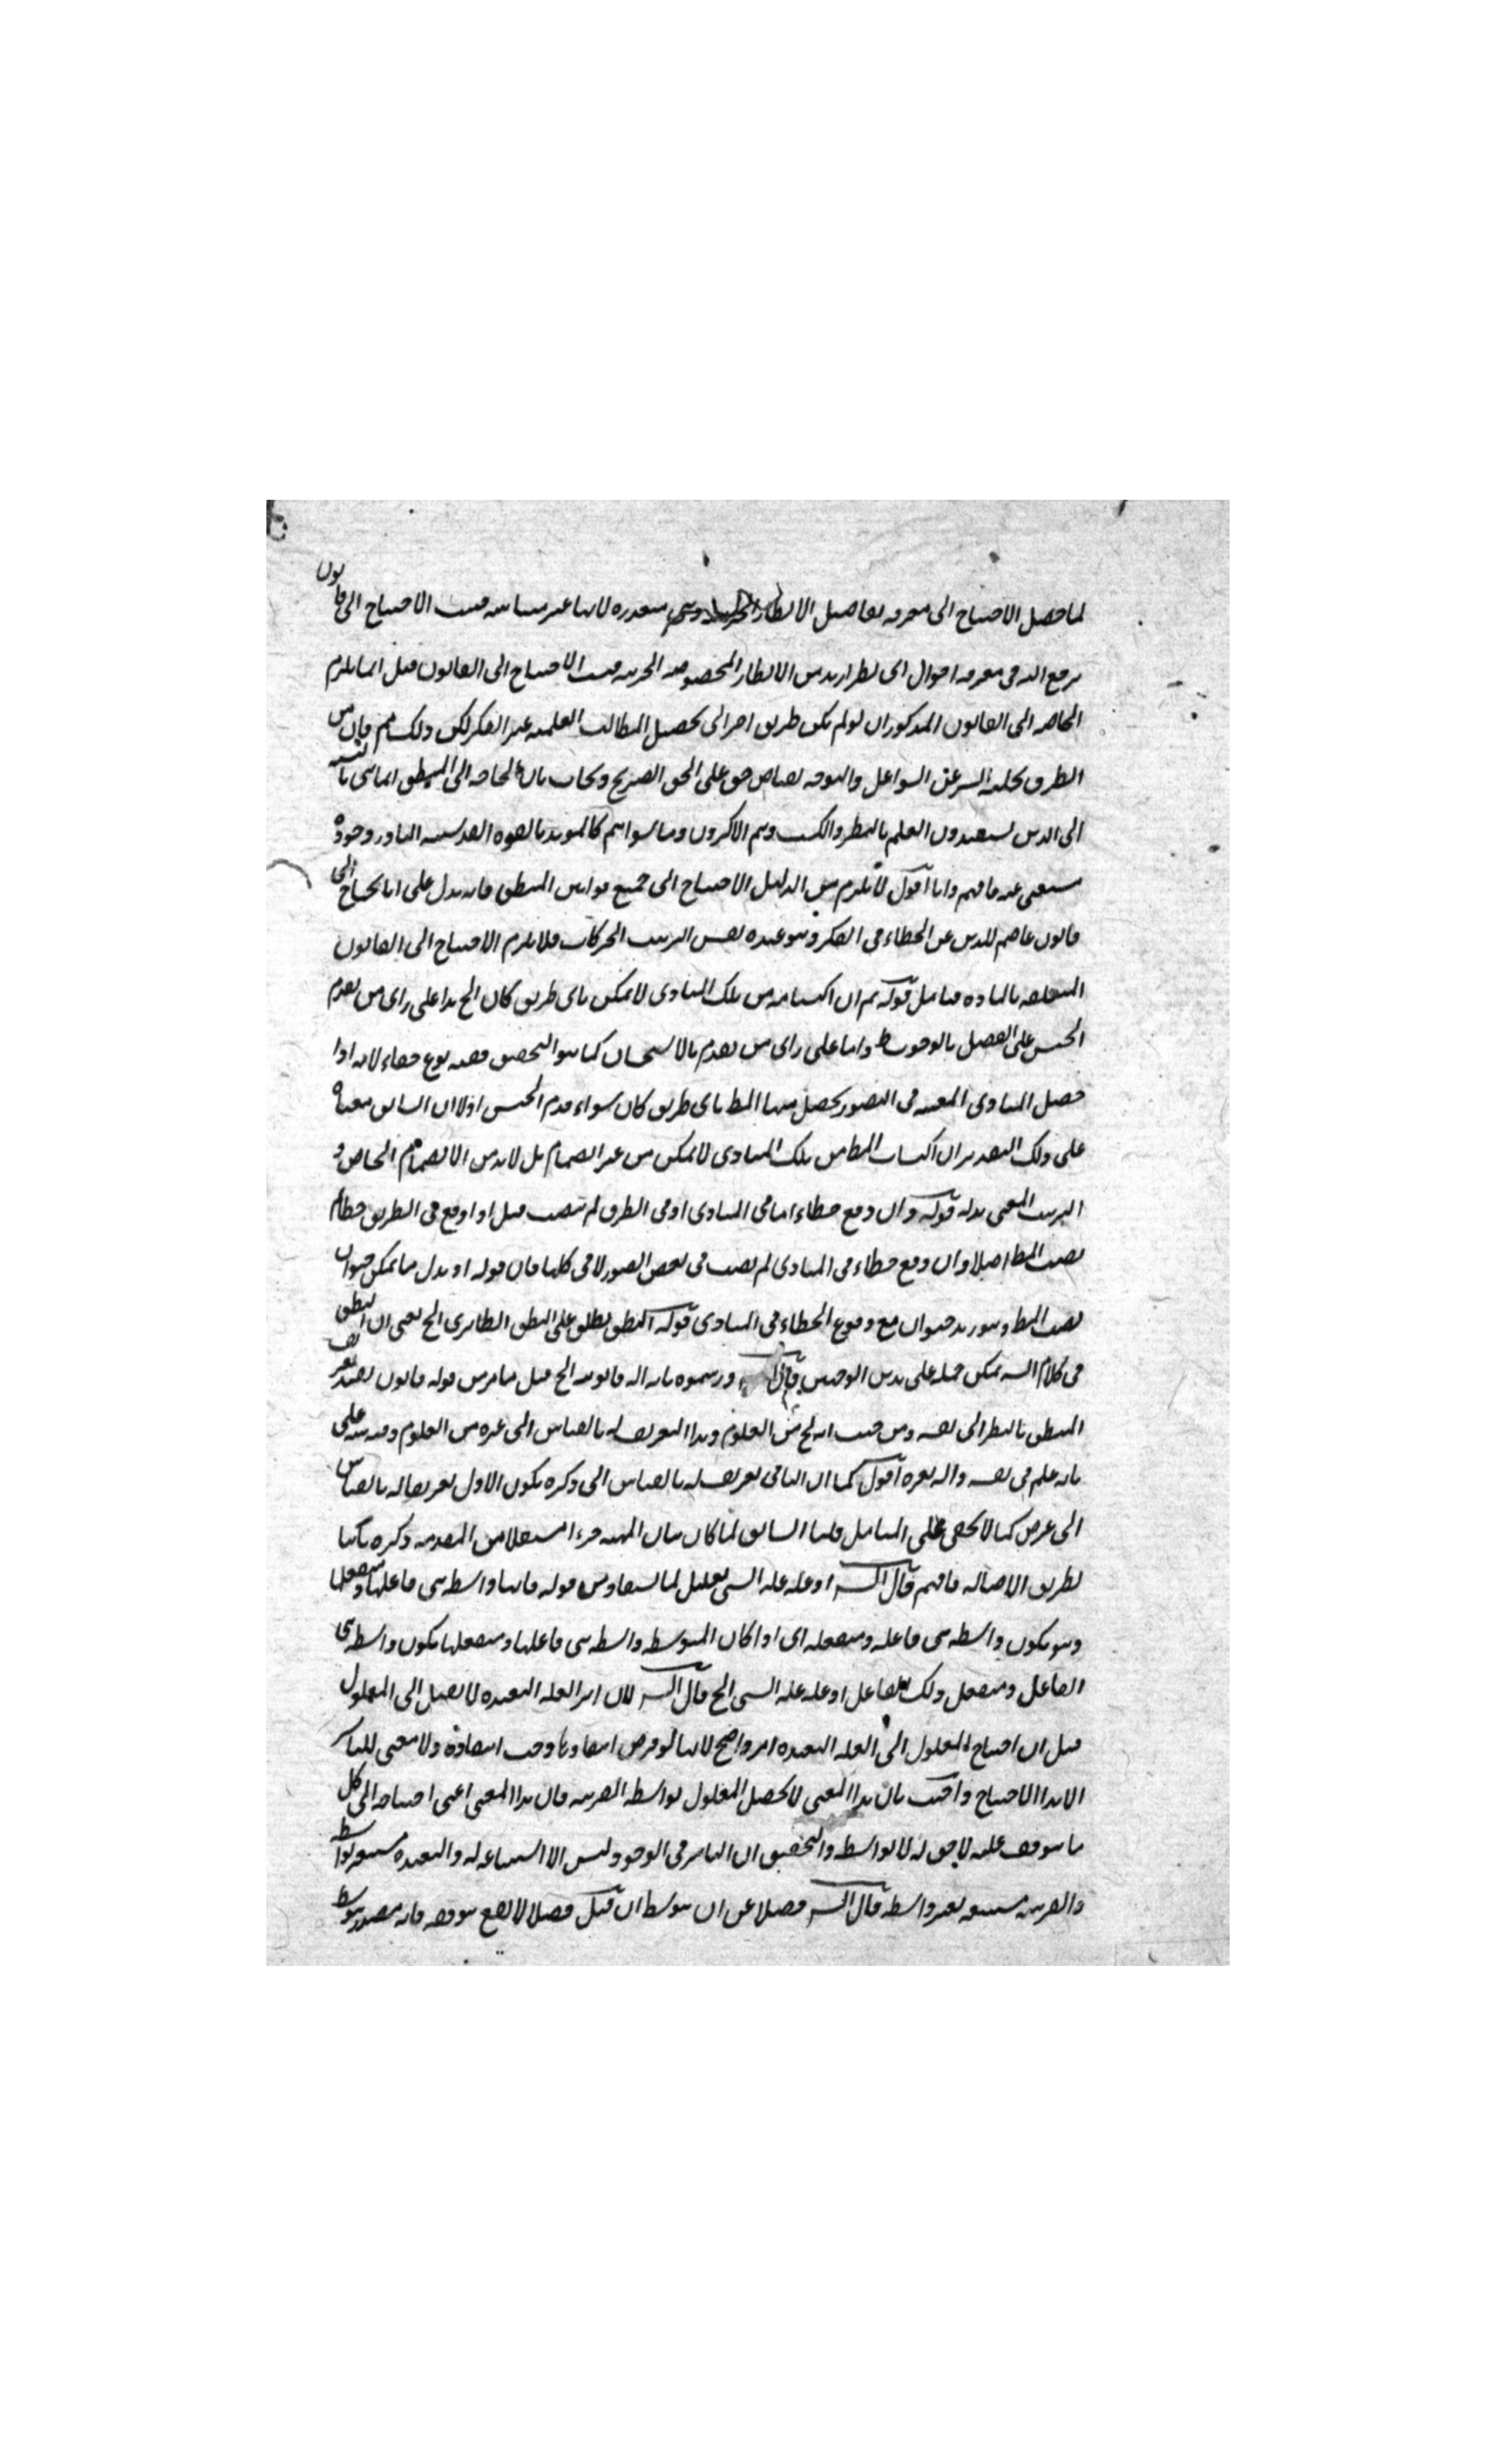 لما حصل الاحتياج الى معرفة تفاصيل الانظار الجزئية وهي متعذرة لانها غير متناهية فثبت الاحتياج الى قانون
يرجع اليه في معرفة احوال اى نظر اريد من الانظار المخصوصة الجزئية فثبت الاحتياج الى القانون قيل انما يلزم
الحاجة الى القانون المذكور ان لو لم يكن طريق اخر الى تحصيل المطالب العلمية غير الفكر لكن ذلك مم فان من
الطرق تخلية السر عن الشواغل والتوجه على الحق الصريح ويجاب بان الحاجة الى المنطق انما هي بالنسبة
الى الذين يستفيدون العلم بالنظر والكسب وهم الاكثرون وما سواهم كالمؤيد بالقوة القدسية النادر وجوده
مستغنى عنه فافهم وانا اقول لا يلزم من الدليل الاحتياج الى جميع قوانين المنطق فانه يدل على انا نحتاج الى
قانون عاصم للذهن عن الخطاء في الفكر وهو عنده نفس الترتيب الحركات فلا يلزم الاحتياج الى القانون
المتعلقة بالمادة فتامل قوله ثم ان اكتسابه من تلك المبادى لا يمكن باى طريق كان الخ هذا على راى من يقدم
الجنس على الفصل بالوجوب ظ واما على راى من يقدم بالاستحسان كما هو التحقيق ففيه نوع خفاء لانه اذا
حصل المبادى المعينة في التصور يحصل منها المط باى طريق كان سواء قدم الجنس اولا ان السابق معناه
على ذلك التقدير ان اكتساب المط من تلك المبادى لا يمكن من غير انضمام بل لا بد من الانضمام الخاص و
الترتيب المعين بدله قوله وان وقع خطاء اما في المبادى او في الطرق لم تصب قيل اذا وقع في الطريق خطا لم
يصب المط اصلا وان وقع خطاء في المبادى لم يصب في بعض الصور لا في كلها فان قوله او بدل ما يمكن حيوان
يصب المط وهو زيد حيوان مع وقوع الخطاء في المبادى قوله النطق يطلق على النطق الظاهرى الخ يعنى ان النطق
في كلام الشـ يمكن حمله على هذين الوجهين قال ورسموه بانه الة قانونية الخ قيل ما مر من قوله قانون يفيد تعريف
المنطق بالنظر الى نفسه ومن حيث انه من العلوم وهذا التعريف له بالقياس الى غيره من العلوم وفيه تنبيه على
بانه علم في نفسه والة لغيره اقول كما ان الثانى تعريف له بالقياس الى ذكره يكون الاول تعريفا له بالقياس
الى غرض كما لا يخفى على المتامل قلنا السابق لما كان بيان المهية جزءا مستقلا من المقدمة ذكره ثانيا
بطريق الاصالة فافهم قال الشـ اذ علة علة الشى تعليل لما يستفاد من قوله فانها واسطة بين فاعلها ومنفعلها
وهو يكون واسطة بين فاعله ومنفعله اى اذا كان المتوسط واسطة بين فاعلها ومنفعلها يكون واسطة بين
الفاعل ومنفعل ذلك الفاعل اذ علة علة الشى الخ قال الشـ لان اثر العلة البعيدة لا يصل الى المعلول
قيل ان احتياج المعلول الى العلة البعيدة امر واضح لانها لو فرض انتفاؤها وجب انتفاؤه ولا معنى للتاثير
الا هذا الاحتياج واجيب بان هذا المعنى لا يحصل المعلول بواسطة القريبة فان هذا المعنى اعنى احتياجه الى كل
ما يتوقف عليه لاحق له لا بواسطة والتحقيق ان التاثير في الوجود ليس الا استتباعه له والبعيدة مستتبعة بواسطة
والقريبة مستتبعة بغير واسطة قال الشـ فضلا عن ان يتوسط ان قيل فضلا لا يقع موقعه فانه يتوسط